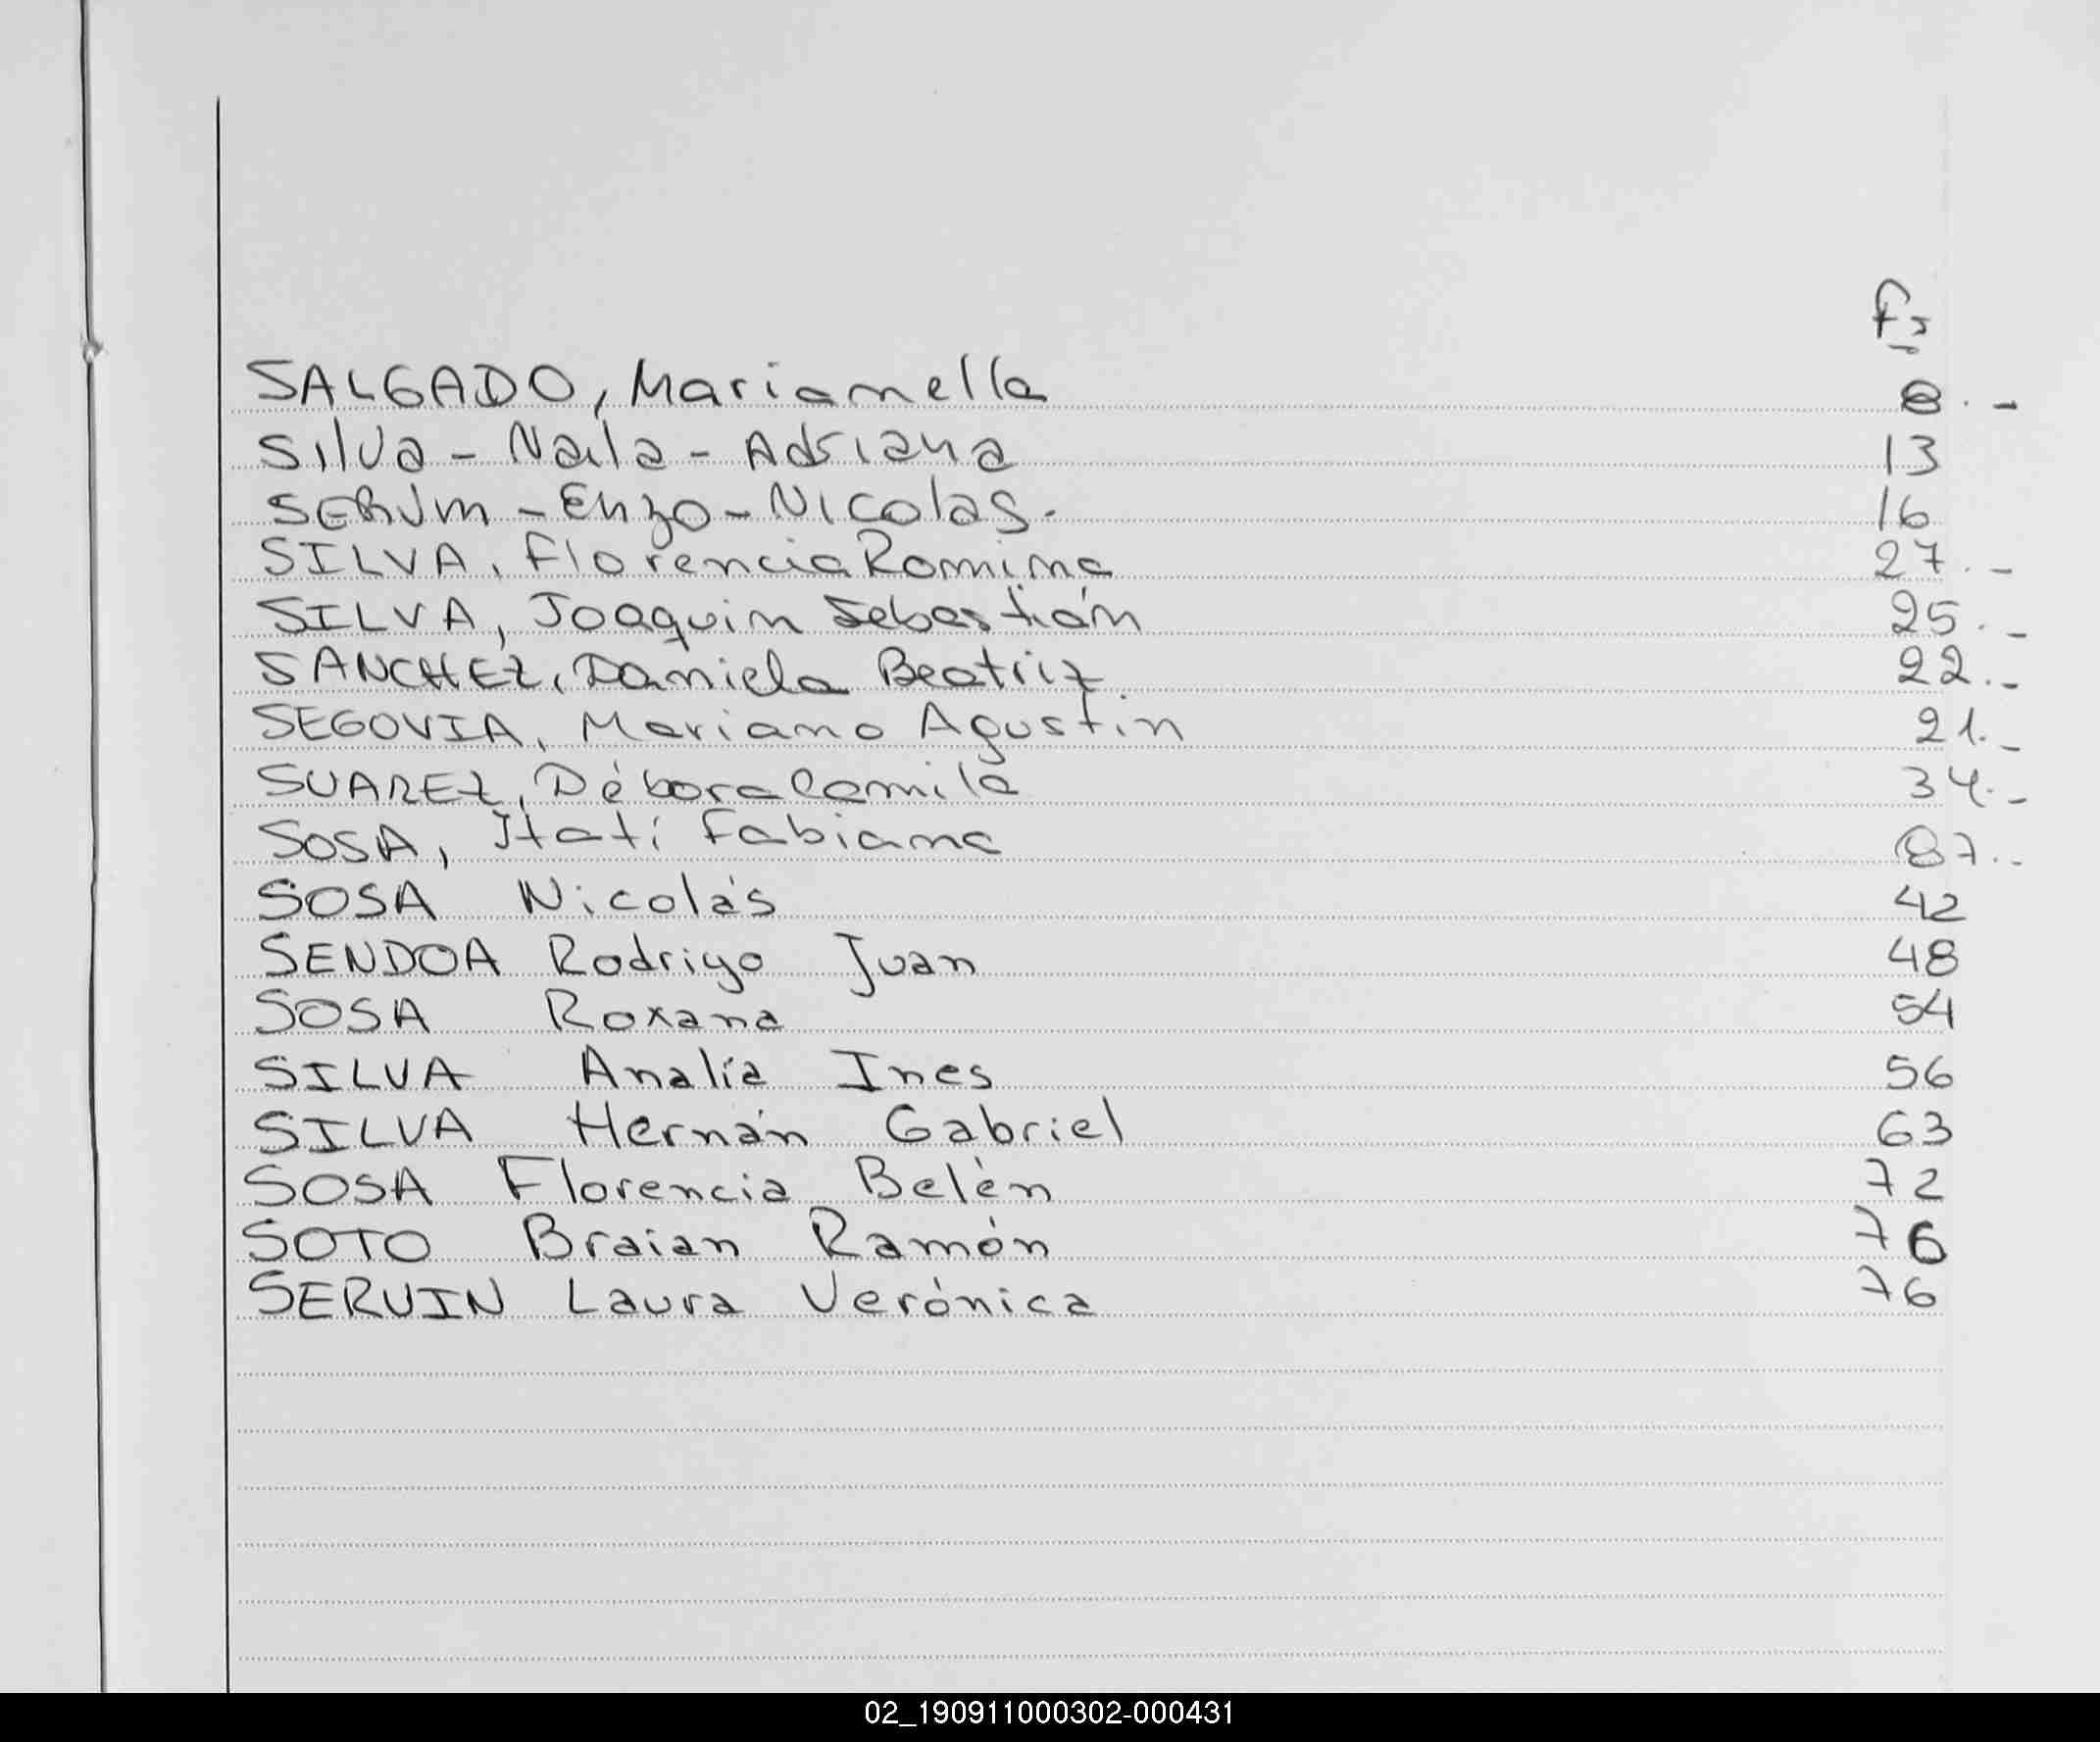 Fs
SALGADO, Marianella 8.-
Silva - Naila - Adriana 13
SERVIN - Enzo - Nicolas. 16
SILVA, Florencia Romina 27.-
SILVA, Joaquin Sebastián 25.-
SANCHEZ, Daniela Beatriz. 22.-
SEGOVIA, Mariano Agustin 21.-
SUAREZ, Débora Camila 34.-
SOSA, Itatí Fabiana 87.-
SOSA Nicolás 42
SENDOA Rodrigo Juan 48
SOSA Roxana 54
SILVA Analía Ines 56
SILVA Hernán Gabriel 63
SOSA Florencia Belén 72
SOTO Braian Ramón 76
SERVIN Laura Verónica 76
02_190911000302-000431